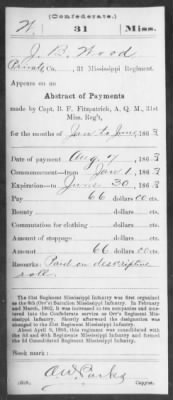 (Confederate.)
W 31 Miss.
J. B. Wood
Private, Co. , 31 Mississippi Regiment.
Appears on an
Abstract of Payments
made by Capt. B. F. Fitzpatrick, A. Q. M., 31st
Miss. Reg't,
for the months of Jan to June, 1863
Date of payment Aug 4, 1863
Commencement—from Jan 1, 1863
Expiration—to June 30, 1863
Pay 66 dollars 00 cts.
Bounty dollars cts.
Commutation for clothing dollars cts.
Amount of stoppage dollars cts.
Amount 66 dollars 00 cts.
Remarks: Paid on descriptive
roll.
The 31st Regiment Mississippi Infantry was first organized
as the 6th (Orr's) Battalion Mississippi Infantry. In February
and March, 1862, it was increased to ten companies and mustered
into the Confederate service as Orr's Regiment Mississippi
Infantry. Shortly afterward the designation was
changed to the 31st Regiment Mississippi Infantry.
About April 9, 1865, this regiment was consolidated with
the 3d and 40th Regiments Mississippi Infantry and formed
the 3d Consolidated Regiment Mississippi Infantry.
Book mark:
Copyist.